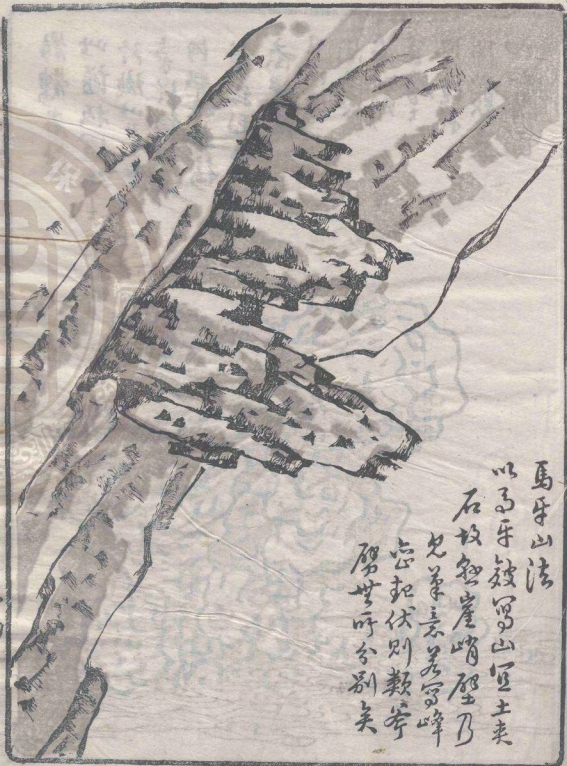 馬牙山法
以馬牙皴寫山宜土夾
石坡懸崖峭壁乃
見筆意若寫峰
巒起伏則類斧
劈無所分別矣